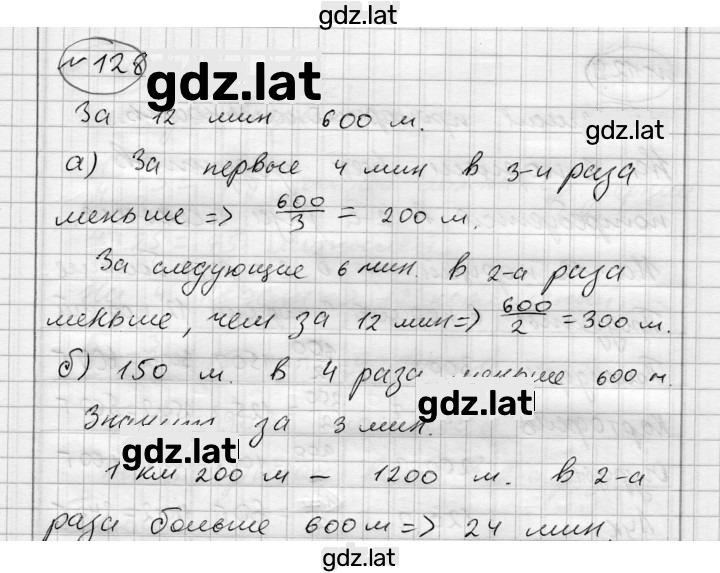 gdz.lat
№128
gdz.lat
За 12 мин 600 м.
gdz.lat
а) За первые 4 мин в 3-и раза
меньше => 600/3 = 200 м.
За следующие 6 мин. в 2-а раза
меньше, чем за 12 мин => 600/2 = 300 м.
б) 150 м. в 4 раза меньше 600 м.
gdz.lat
Значит за 3 мин.
gdz.lat
1 км 200 м - 1200 м. в 2-а
раза больше 600 м => 24 мин.
gdz.lat